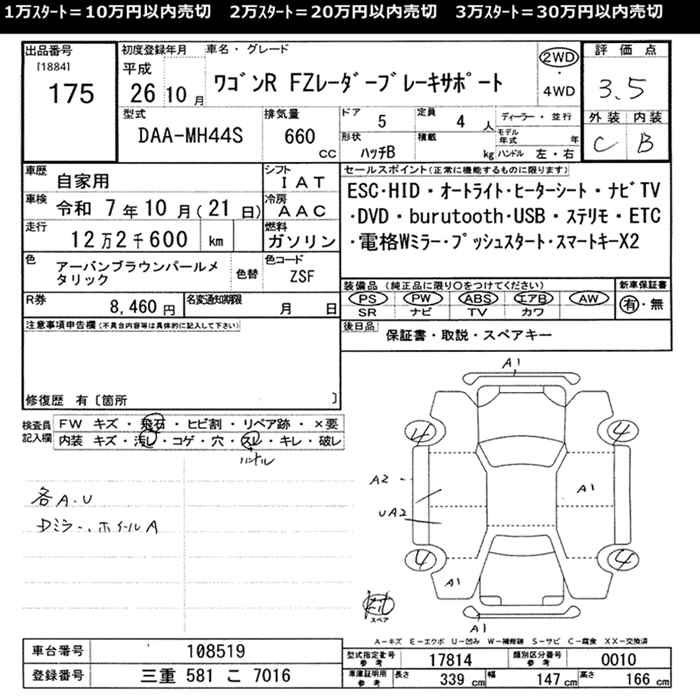 1万ｽﾀｰﾄ＝10万円以内売切　2万ｽﾀｰﾄ＝20万円以内売切　3万ｽﾀｰﾄ＝30万円以内売切
出品番号
[1884]
175
初度登録年月
平成
26 10月
車名・グレード
ワゴンR FZレーダーブレーキサポート
2WD
・
4WD
評価点
3.5
外装 内装
C B
型式
DAA-MH44S
排気量
660
CC
ドア
5
定員
4 人
ディーラー・並行
形状
ハッチB
積載
kg
モデル年式 年
ハンドル 左・右
車歴
自家用
シフト
IAT
車検
令和 7年10月(21日)
冷房
AAC
走行
12万2千600 km
燃料
ガソリン
色
アーバンブラウンパールメタリック
色替
色コード
ZSF
セールスポイント(正常に機能するものに限ります)
ESC・HID・オートライト・ヒーターシート・ナビTV
・DVD・burutooth・USB・ステリモ・ETC
・電格Wミラー・プッシュスタート・スマートキーX2
R券
8,460円
名変通知期限
月 日
装備品(純正品に限り○をつけてください)
PS PW ABS エアB AW
SR ナビ TV カワ
新車保証書
有・無
後日品
保証書・取説・スペアキー
注意事項申告欄(不具合内容等は具体的に記入して下さい)
修復歴 有〔箇所 〕
検査員
記入欄
FW キズ・飛石・ヒビ割・リペア跡・×要
内装 キズ・汚レ・コゲ・穴・スレ・キレ・破レ
ハンドル
各A.U
Dミラー、ホイールA
A1
4
4
A2
UA2
A1
4
4
A1
A1
スペア
A－キズ E－エクボ U－凹み W－補修跡 S－サビ C－腐食 XX－交換済
車台番号
108519
登録番号
三重 581 こ 7016
型式指定番号
参考
17814
類別区分番号
参考
0010
車庫証明用
参考
長さ 339 cm
幅 147 cm
高さ 166 cm